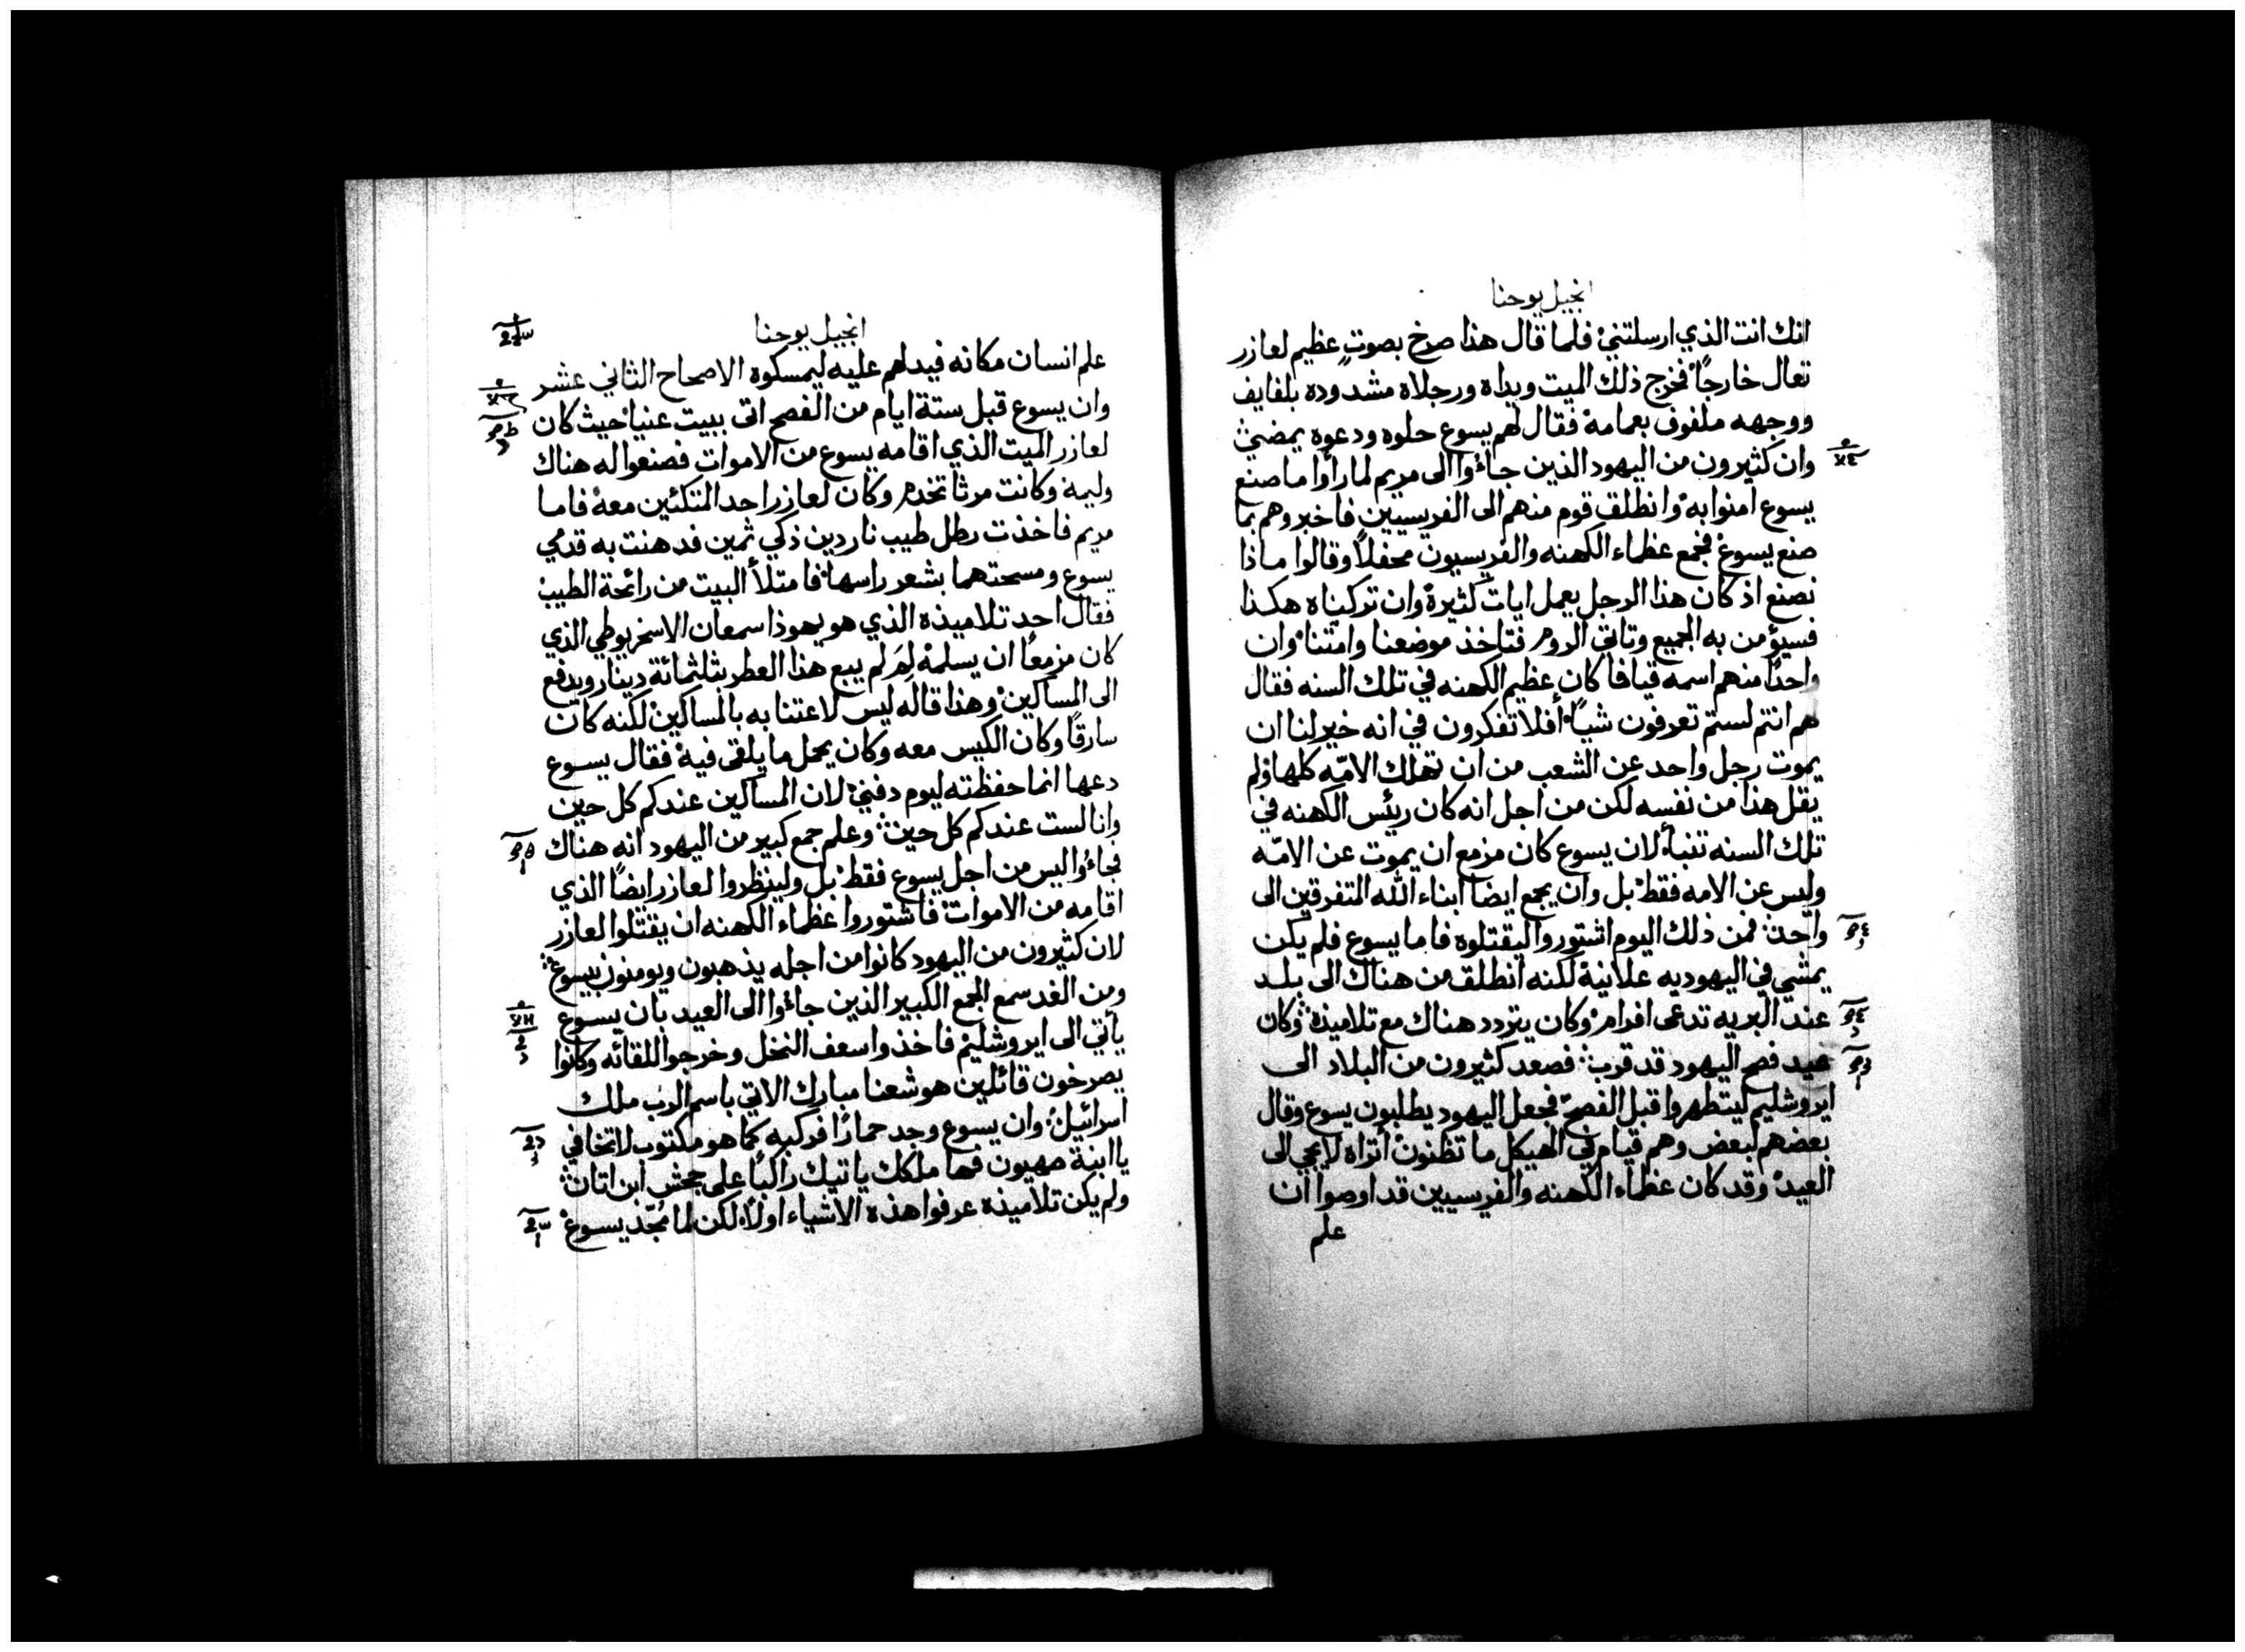 انجيل يوحنا
انك انت الذي ارسلتني فلما قال هذا صرخ بصوتٍ عظيم لعازر
تعال خارجًا فخرج ذلك الميت ويداه ورجلاه مشدوده بلفايف
ووجهه ملفوف بعمامة فقال لهم يسوع حلوه ودعوه يمضي
وان كثيرون من اليهود الذين جاءوا الى مريم لما راوا ما صنع
يسوع امنوا به وانطلق قوم منهم الى الفريسيين فاخبروهم بما
صنع يسوع فجمع عظماء الكهنه والفريسيون محفلًا وقالوا ماذا
نصنع اذ كان هذا الرجل يعمل ايات كثيرة وان تركناه هكذا
فسيؤمن به الجميع وتاتي الروم فتاخذ موضعنا وامتنا وان
واحدًا منهم اسمه قيافا كان عظيم الكهنه في تلك السنه فقال
هم انتم لستم تعرفون شيًا أفلا تفكرون في انه خير لنا ان
يموت رجل واحد عن الشعب من ان تهلك الامّه كلها ولم
يقل هذا من نفسه لكن من اجل انه كان ريئس الكهنه في
تلك السنه تنبأ لان يسوع كان مزمع ان يموت عن الامّه
وليس عن الامه فقط بل وان يجمع ايضا ابناء الله المتفرقين الى
واحد فمن ذلك اليوم اشتوروا ليقتلوه فاما يسوع فلم يكن
يمشي في اليهوديه علانية لكنه انطلق من هناك الى بلد
عند البريه تدعى افرام وكان يتردد هناك مع تلاميذه وكان
عيد فصح اليهود قد قرب فصعد كثيرون من البلاد الى
ايروشليم ليتطهروا قبل الفصح فجعل اليهود يطلبون يسوع وقال
بعضهم لبعض وهم قيام في الهيكل ما تظنون أتراه لا يجي الى
العيد وقد كان عظماء الكهنه والفريسيين قد اوصوا ان
علم
انجيل يوحنا
علم انسان مكانه فيدلهم عليه ليمسكوه الاصحاح الثاني عشر
وان يسوع قبل ستة ايام من الفصح اتى ببيت عنيا حيث كان
لعازر الميت الذي اقامه يسوع من الاموات فصنعوا له هناك
وليمة وكانت مرثا تخدم وكان لعازر احد المتكئين معه فاما
مريم فاخذت رطل طيب ناردين ذكي ثمين فدهنت به قدمي
يسوع ومسحتهما بشعر راسها فامتلأ البيت من رائحة الطيب
فقال احد تلاميذه الذي هو يهوذا سمعان الاسخريوطي الذي
كان مزمعًا ان يسلمه لِمَ لم يبع هذا العطر بثلثمائة دينار ويدفع
الى المساكين وهذا قاله ليس لاعتنا به بالمساكين لكنه كان
سارقًا وكان الكيس معه وكان يحمل ما يلقى فيه فقال يسوع
دعها انما حفظته ليوم دفني لان المساكين عندكم كل حين
وانا لست عندكم كل حين وعلم جمع كبير من اليهود انه هناك
فجاءُوا ليس من اجل يسوع فقط بل ولينظروا لعازر ايضًا الذي
اقامه من الاموات فاشتوروا عظماء الكهنه ان يقتلوا لعازر
لان كثيرون من اليهود كانوا من اجله يذهبون ويومنون بيسوع
ومن الغد سمع الجمع الكبير الذين جاءوا الى العيد بان يسوع
يأتي الى ايروشليم فاخذوا سعف النخل وخرجوا للقائه وكانوا
يصرخون قائلين هوشعنا مبارك الاتي باسم الرب ملك
اسرائيل وان يسوع وجد حمارًا فركبه كما هو مكتوب لا تخافي
يا ابنة صهيون فها ملكك ياتيك راكبًا على جحش ابن اتان
ولم يكن تلاميذه عرفوا هذه الاشياء اولًا لكن لما مُجّد يسوع